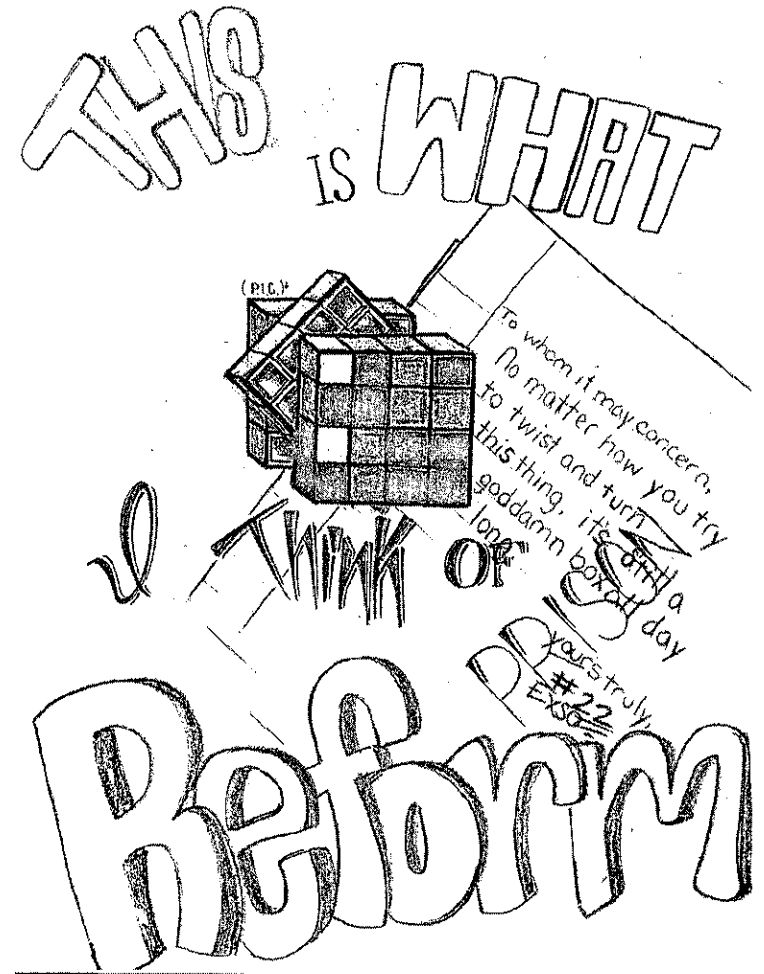 THIS
IS WHAT
(P.I.C.)*
To whom it may concern,
No matter how you try
to twist and turn
this thing, it's still a
goddamn box all day
long
yours truly,
#22
I THINK OF
PRISON
Reform